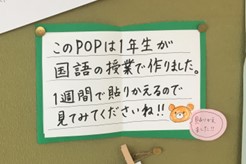 このPOPは1年生が
国語の授業で作りました。
1週間で貼りかえるので
見てみてくださいね!!